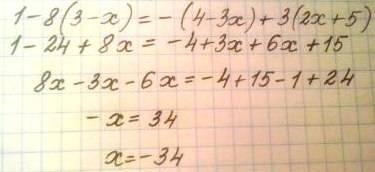 1-8(3-x)=-(4-3x)+3(2x+5)
1-24+8x=-4+3x+6x+15
8x-3x-6x=-4+15-1+24
-x=34
x=-34